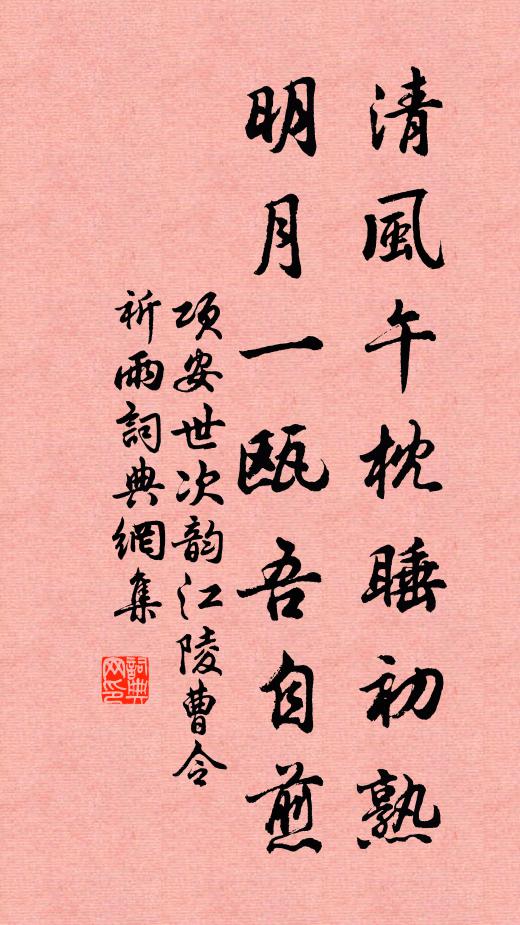 清風午枕睡初熟
明月一甌吾自煎
項安世次韵江陵曹令
祈雨詞典網集
詞典网印